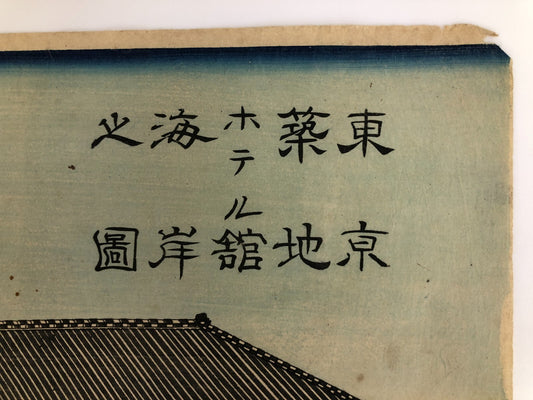 東亰
築地
ホテル舘
海岸
之圖